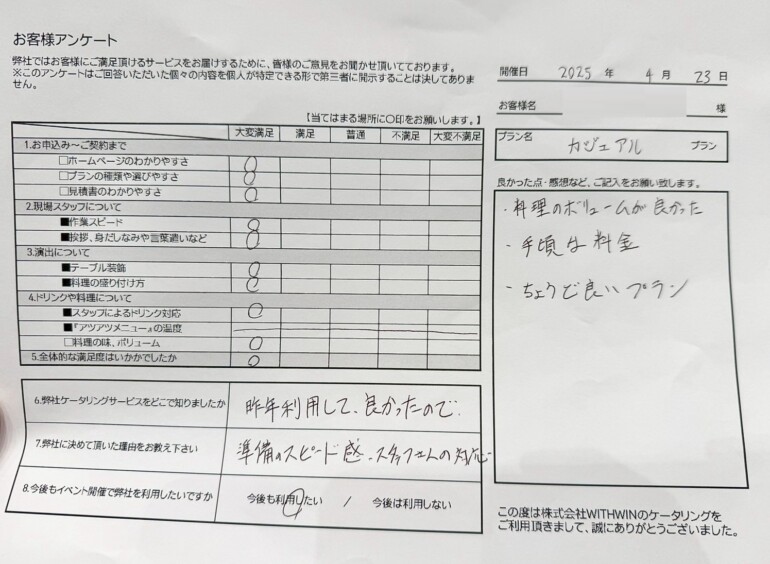 お客様アンケート
弊社ではお客様にご満足頂けるサービスをお届けするために、皆様のご意見をお聞かせ頂いております。
※このアンケートはご回答いただいた個々の内容を個人が特定できる形で第三者に開示することは決してありま
せん。
【当てはまる場所に〇印をお願いします。】
大変満足 満足 普通 不満足 大変不満足
1.お申込み～ご契約まで
□ホームページのわかりやすさ
□プランの種類や選びやすさ
□見積書のわかりやすさ
2.現場スタッフについて
■作業スピード
■挨拶、身だしなみや言葉遣いなど
3.演出について
■テーブル装飾
■料理の盛り付け方
4.ドリンクや料理について
■スタッフによるドリンク対応
■『アツアツメニュー』の温度
□料理の味、ボリューム
5.全体的な満足度はいかがでしたか
6.弊社ケータリングサービスをどこで知りましたか 昨年利用して、良かったので
7.弊社に決めて頂いた理由をお教え下さい 準備のスピード感、スタッフさんの対応
8.今後もイベント開催で弊社を利用したいですか 今後も利用したい / 今後は利用しない
開催日 2025 年 4 月 23 日
お客様名 様
プラン名 カジュアル プラン
良かった点・感想など、ご記入をお願い致します。
・料理のボリュームが良かった
・手頃な料金
・ちょうど良いプラン
この度は株式会社WITHWINのケータリングを
ご利用頂きまして、誠にありがとうございました。